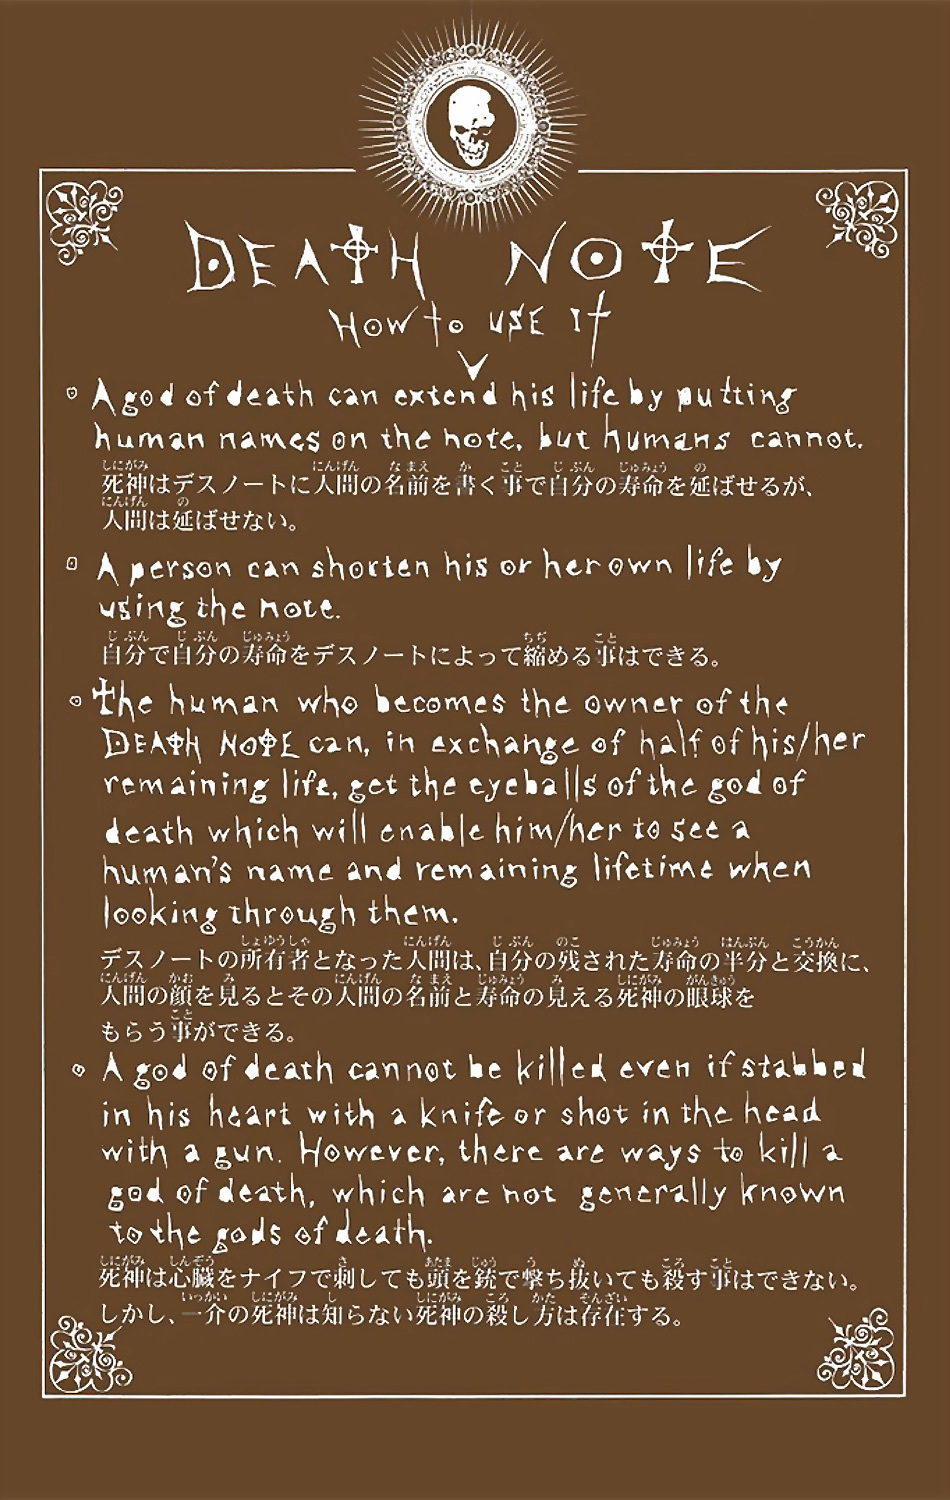 DEATH NOTE
HOW to USE IT
A god of death can extend his life by putting
human names on the note, but humans cannot.
死神はデスノートに人間の名前を書く事で自分の寿命を延ばせるが、
人間は延ばせない。
A person can shorten his or her own life by
using the note.
自分で自分の寿命をデスノートによって縮める事はできる。
The human who becomes the owner of the
DEATH NOTE can, in exchange of half of his/her
remaining life, get the eyeballs of the god of
death which will enable him/her to see a
human's name and remaining lifetime when
looking through them.
デスノートの所有者となった人間は、自分の残された寿命の半分と交換に、
人間の顔を見るとその人間の名前と寿命の見える死神の眼球を
もらう事ができる。
A god of death cannot be killed even if stabbed
in his heart with a knife or shot in the head
with a gun. However, there are ways to kill a
god of death, which are not generally known
to the gods of death.
死神は心臓をナイフで刺しても頭を銃で撃ち抜いても殺す事はできない。
しかし、一介の死神は知らない死神の殺し方は存在する。